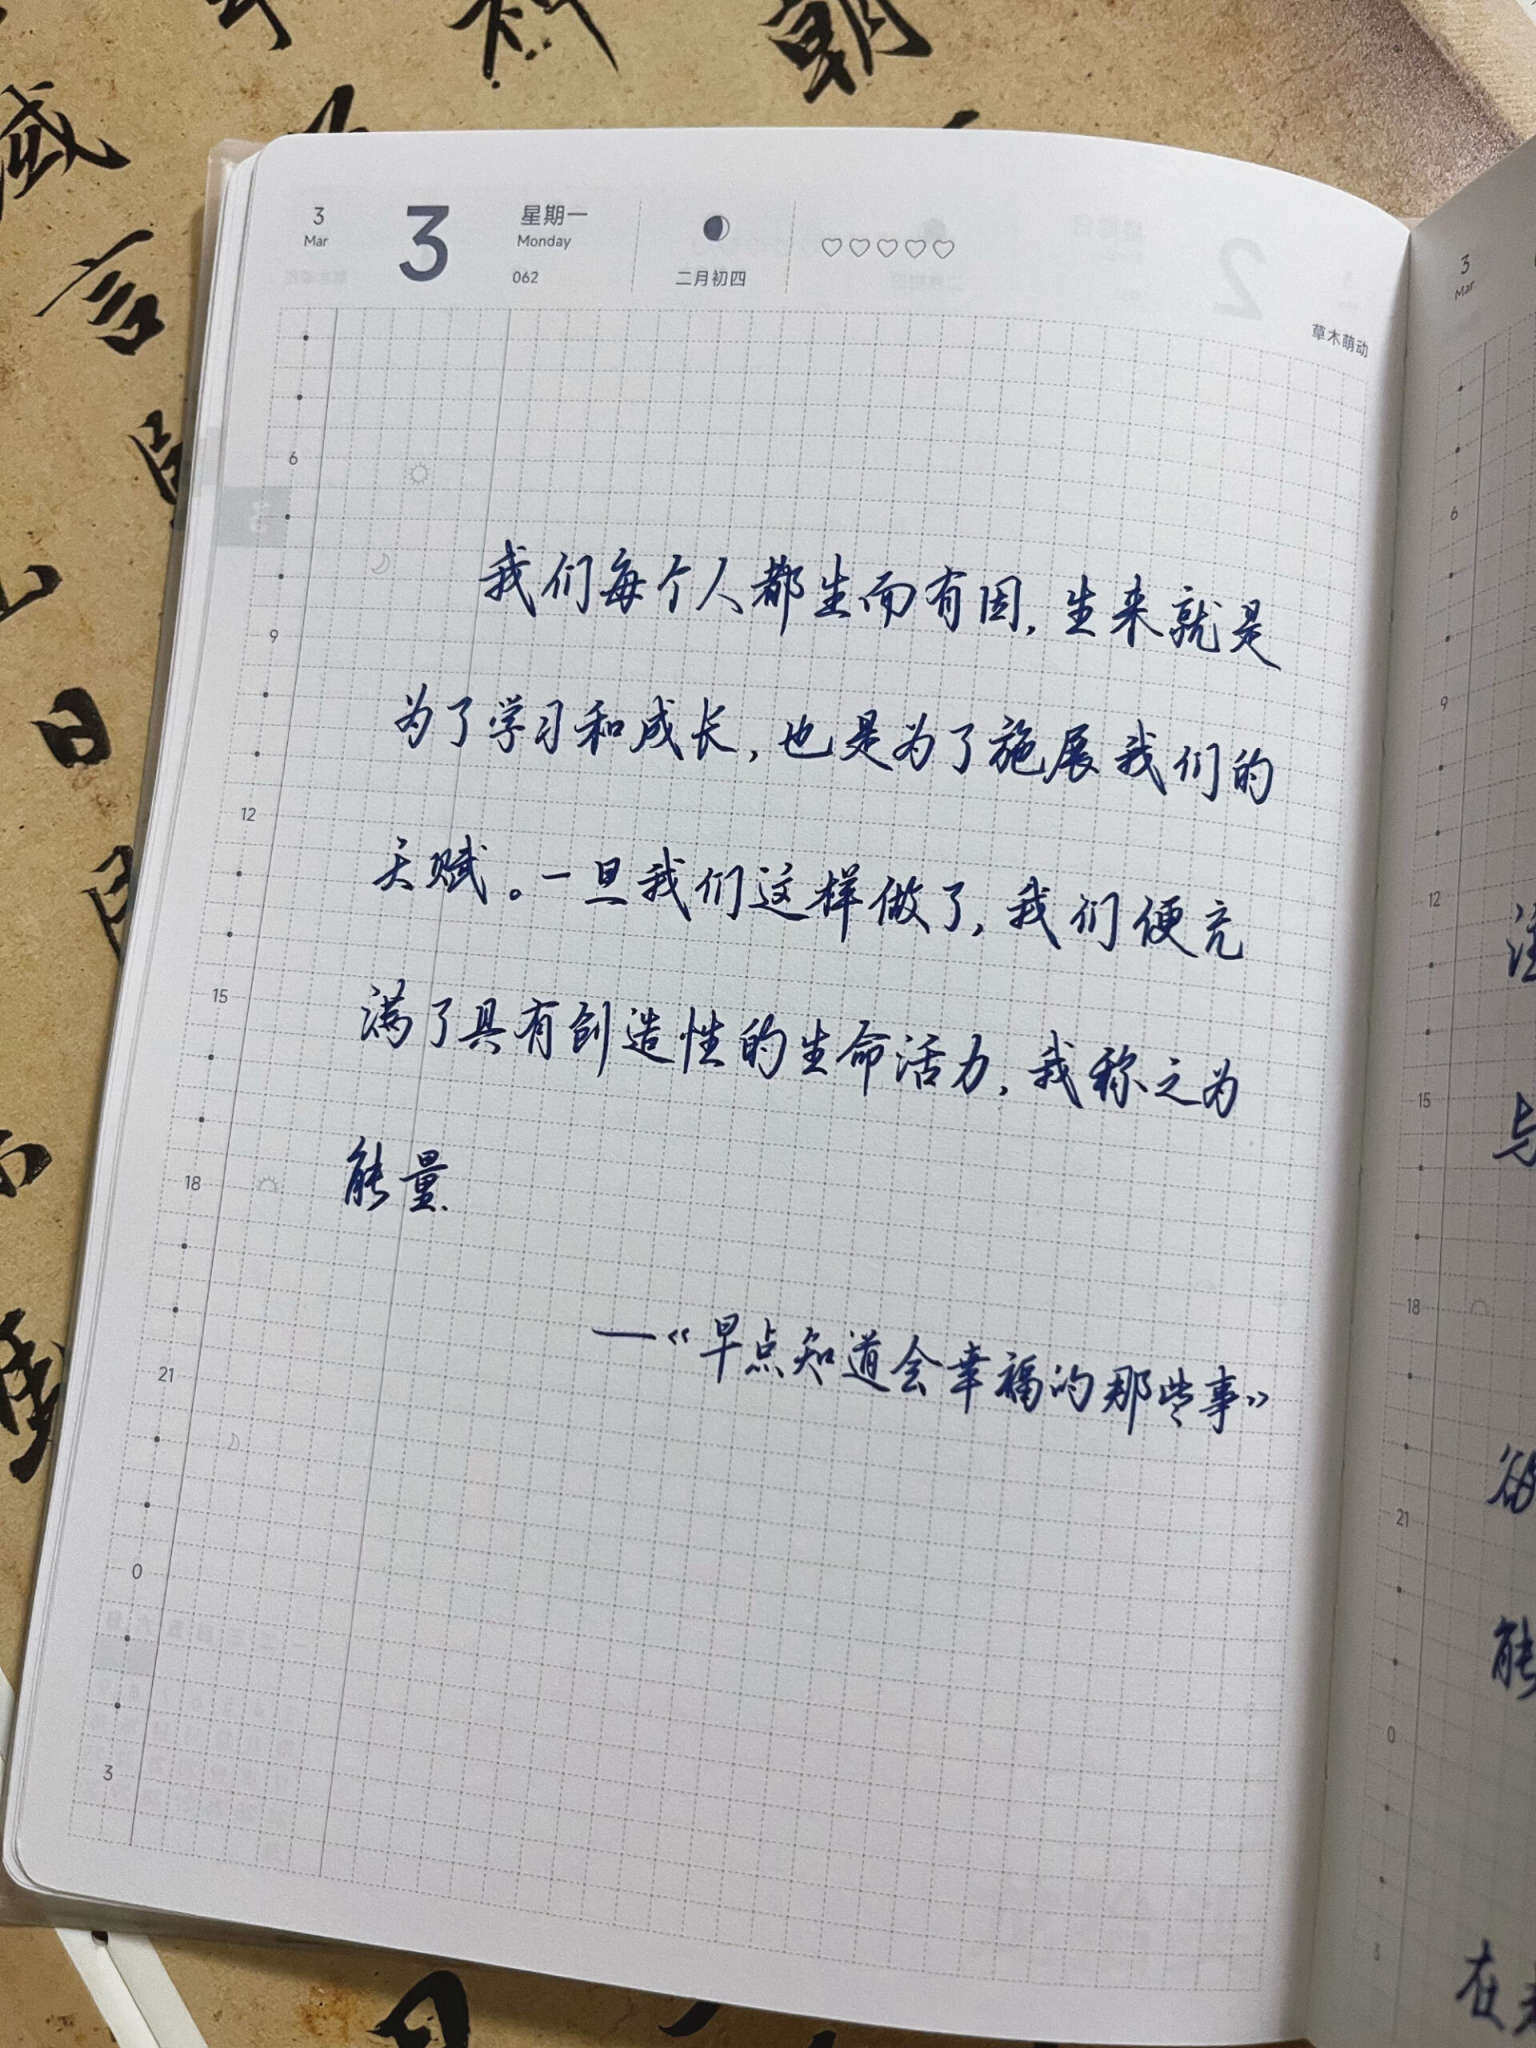 3 Mar
3
星期一
Monday
062
二月初四
草木萌动
6
9
12
15
18
21
0
3
我们每个人都生而有因,生来就是
为了学习和成长,也是为了施展我们的
天赋。一旦我们这样做了,我们便充
满了具有创造性的生命活力,我称之为
能量.
—《早点知道会幸福的那些事》
3
Mar
6
9
12
15
18
21
0
3
与
能
在
言
日
朝